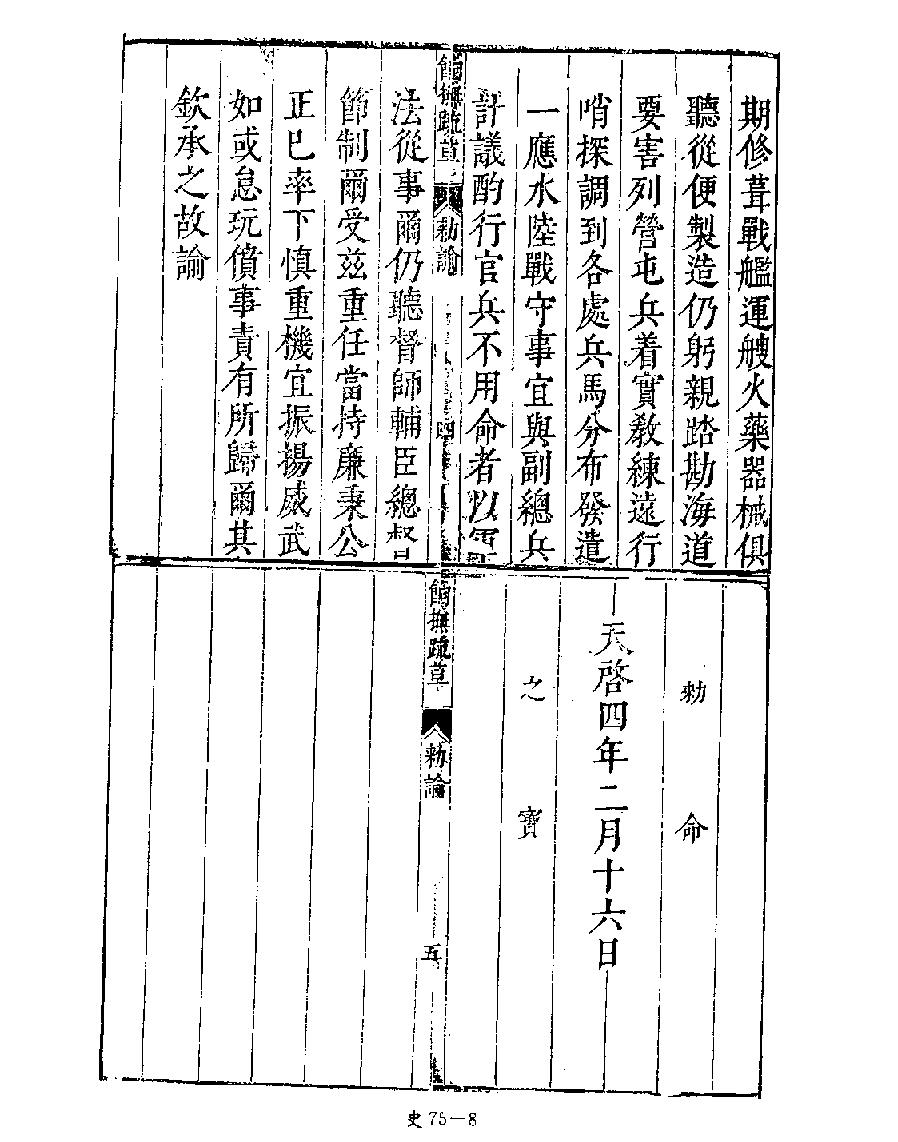 期修葺戰艦運艘火藥器械俱
聽從便製造仍躬親踏勘海道
要害列營屯兵着實教練遠行
哨探調到各處兵馬分布發遣
一應水陸戰守事宜與副總兵
計議酌行官兵不用命者以軍
餉撫疏草
勑諭
四
法從事爾仍聽督師輔臣總督
節制爾受兹重任當持廉秉公
正已率下慎重機宜振揚威武
如或怠玩僨事責有所歸爾其
欽承之故諭
勑命
天啓四年二月十六日
之寳
餉撫疏草
勑諭
五
史75—8